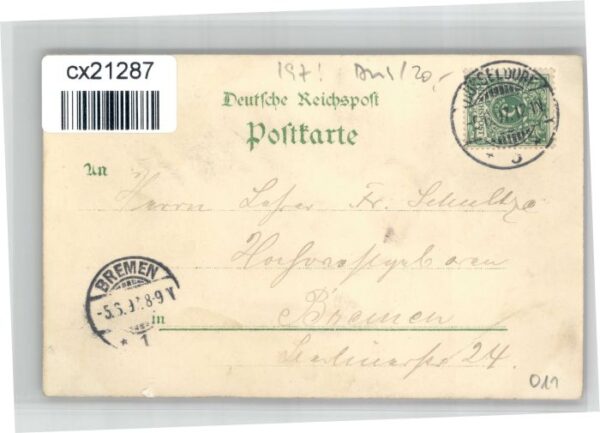 cx21287
197!
Deutsche Reichspost
Postkarte
DÜSSELDORF
5
An
Herrn Fr. Schultze
Hochwohlgeboren
BREMEN
-5.6.97.8-9V
* 1
in Bremen
Berlinerstr 24.
011